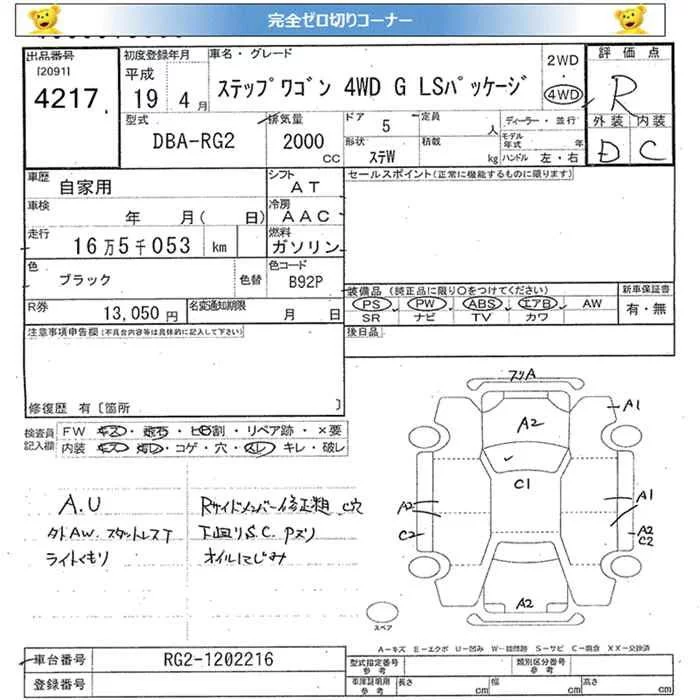 完全ゼロ切りコーナー
出品番号 [2091] 4217
初度登録年月 平成 19 4月
車名・グレード ステップワゴン 4WD G LSパッケージ
2WD・4WD
評価点 R
外装 D 内装 C
型式 DBA-RG2
排気量 2000 CC
ドア 5 定員 人
形状 ステW 積載 kg
ディーラー・並行
モデル年式 年
ハンドル 左・右
車歴 自家用
シフト AT
セールスポイント(正常に機能するものに限ります)
車検 年 月( 日)
冷房 AAC
走行 16万5千053 km
燃料 ガソリン
色 ブラック 色替
色コード B92P
R券 13,050円
名変通知期限 月 日
装備品(純正品に限り○をつけてください)
PS PW ABS エアB AW
SR ナビ TV カワ
新車保証書 有・無
注意事項申告欄(不具合内容等は具体的に記入して下さい)
後日品
修復歴 有〔箇所 〕
検査員記入欄
FW キズ・飛石・ヒビ割・リペア跡・×要
内装 キズ・汚レ・コゲ・穴・スレ・キレ・破レ
A.U
外AW.スタットレスT
ライトくもり
Rサイドメンバー修正粗 C穴
下回りS.C Pズリ
オイルにじみ
スリA
A2
A1
C1
A2
C2
A1
A2
C2
A2
スペア
A-キズ E-エクボ U-凹み S-サビ C-腐食 XX-交換済
車台番号 RG2-1202216
登録番号
型式指定番号 参考
類別区分番号 参考
車庫証明用 参考 長さ cm 幅 cm 高さ cm